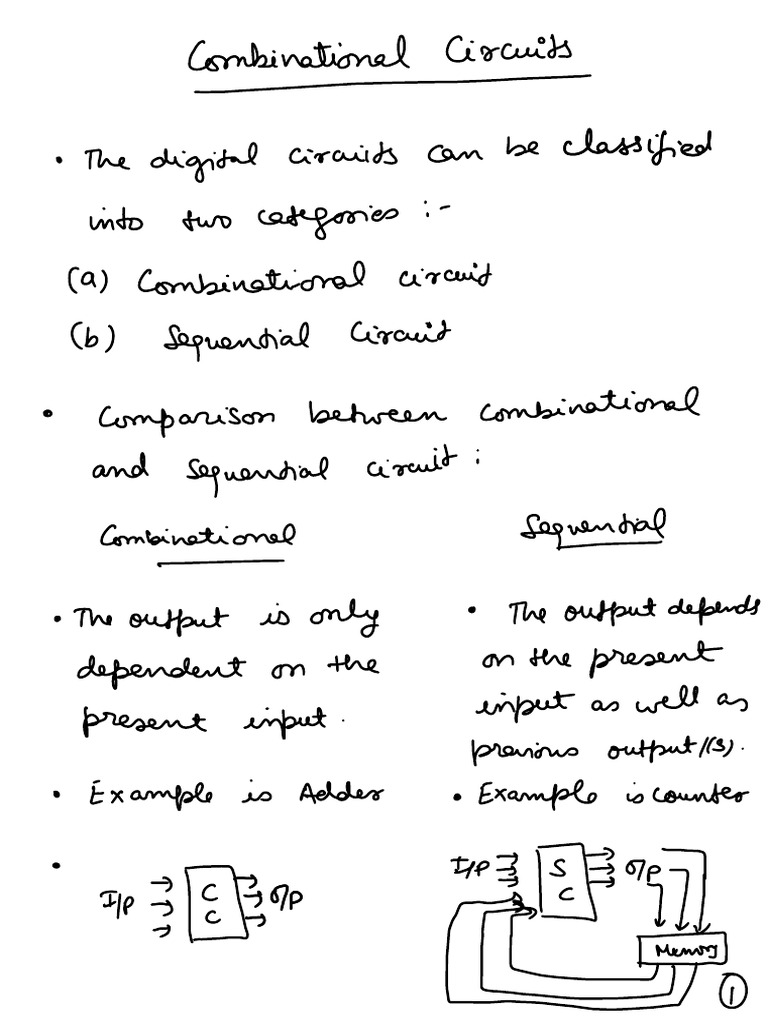 Combinational Circuits
• The digital circuits can be classified
into two categories :-
(a) Combinational circuit
(b) Sequential Circuit
• Comparison between combinational
and sequential circuit :
Combinational
• The output is only
dependent on the
present input.
• Example is Adder
•
I/P
C
C
O/P
Sequential
• The output depends
on the present
input as well as
previous output/(s).
• Example is counter
I/P
S
C
O/P
Memory
1